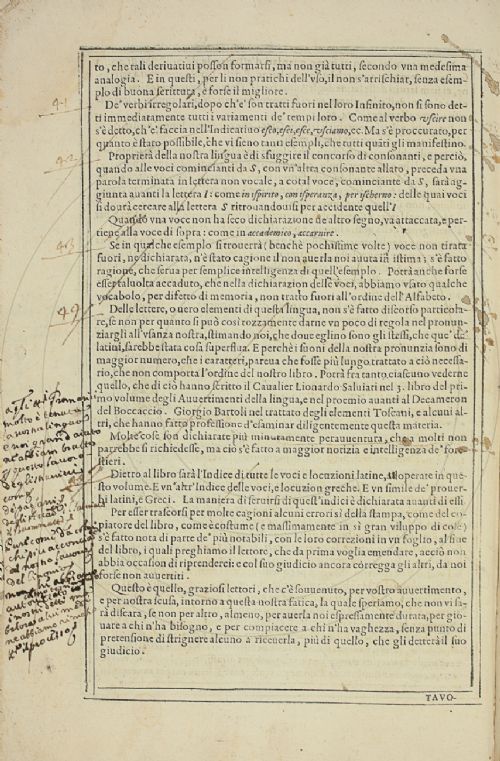 to, che tali deriuatiui posson formarsi, ma non già tutti, secondo vna medesima
analogia. E in questi, per li non pratichi dell'vso, il non s'arrischiar, senza esem-
plo di buona scrittura, è forse il migliore.
De' verbi irregolari, dopo ch'e' son tratti fuori nel loro Infinito, non si sono det-
ti immediatamente tutti i variamenti de' tempi loro. Come al verbo vscire non
s'è detto, ch'e' faccia nell'Indicatiuo esco, esci, esce, vsciamo, ec. Ma s'è proccurato, per
quanto è stato possibile, che vi sieno tanti esempli, che tutti quãti gli manifestino.
Proprietà della nostra lingua è di sfuggire il concorso di consonanti, e perciò,
quando alle voci comincianti da S, con vn'altra consonante allato, preceda vna
parola terminata in lettera non vocale, a cotal voce, cominciante da S, sarà ag-
giunta auanti la lettera I: come in ispirito, con isperanza, per ischerno: delle quai voci
si dourà cercare alla lettera S ritrouandouisi per accidente quell'I
Quando vna voce non ha seco dichiarazione di altro segno, va attaccata, e per-
tiene alla voce di sopra: come in accademico, accarnire.
Se in qualche esemplo si trouerrà (benchè pochissime volte) voce non tirata
fuori, ne dichiarata, n'è stato cagione il non auerla noi auuta in istima; s'è fatto
ragione, che serua per semplice intelligenza di quell'esemplo. Potrà anche forse
esser taluolta accaduto, che nella dichiarazion delle voci, abbiamo vsato qualche
vocabolo, per difetto di memoria, non tratto fuori all'ordine dell'Alfabeto.
Delle lettere, o uero elementi di questa lingua, non s'è fatto discorso particola-
re, se non per quanto si può così rozzamente darne vn poco di regola nel pronun-
ziargli all'vsanza nostra, stimando noi, che doue eglino sono gli stessi, che que' de'
latini, sarebbe stata cosa superflua. E perchè i suoni della nostra pronunzia sono di
maggior numero, che i caratteri, pareua che fosse più lungo trattato a ciò necessa-
rio, che non comporta l'ordine del nostro libro. Potrà fra tanto, ciascuno vederne
quello, che di ciò hanno scritto il Caualier Lionardo Saluiati nel 3. libro del pri-
mo volume degli Auuertimenti della lingua, e nel proemio auanti al Decameron
del Boccaccio. Giorgio Bartoli nel trattato degli elementi Toscani, e alcuni al-
tri, che hanno fatto professione d'esaminar diligentemente questa materia.
Molte cose son dichiarate più minutamente perauuentura, che a molti non
parrebbe si richiedesse, ma ciò s'è fatto a maggior notizia e intelligenza de' fo-
restieri.
Dietro al libro sarà l'Indice di tutte le voci e locuzioni latine, adoperate in que-
sto volume. E vn'altr'Indice delle voci, e locuzion greche. E vn simile de' prouer-
bi latini, e Greci. La maniera di seruirsi di quest'indici è dichiarata auanti di essi.
Per esser trascorsi per molte cagioni alcuni errori sì della stampa, come del co-
piatore del libro, come è costume (e massimamente in sì gran viluppo di cose)
s'è fatto nota di parte de' più notabili, con le loro correzioni in vn foglio, al fine
del libro, i quali preghiamo il lettore, che da prima voglia emendare, acciò non
abbia occasion di riprenderci: e col suo giudicio ancora corregga gli altri, da noi
forse non auuertiti.
Questo è quello, graziosi lettori, che c'è souuenuto, per vostro auuertimento,
e per nostra scusa, intorno a questa nostra fatica, la quale speriamo, che non vi sa-
rà discara, se non per altro, almeno, per auerla noi espressamente durata, per gio-
uare a chi n'ha bisogno, e per compiacere a chi n'ha vaghezza, senza punto di
pretensione di strignere alcuno a riceuerla, più di quello, che gli detterà il suo
giudicio.
TAVO-